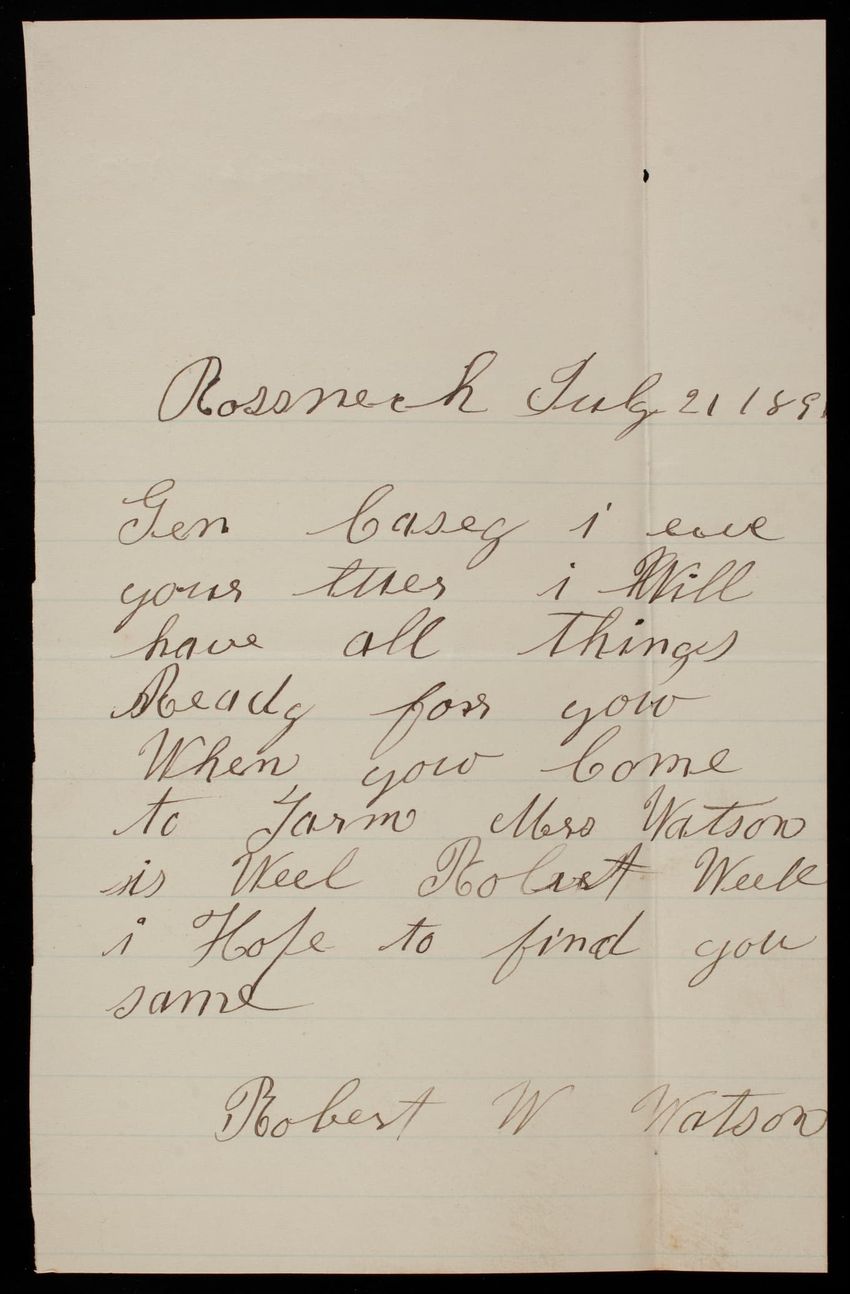 Rossneck July 21 189
Gen Casey i
your i Will
have all things
Ready forr yow
When yow Come
to Farm Mrs Watson
is Weel Robert Well
i Hope to find you
same
Robert W Watson